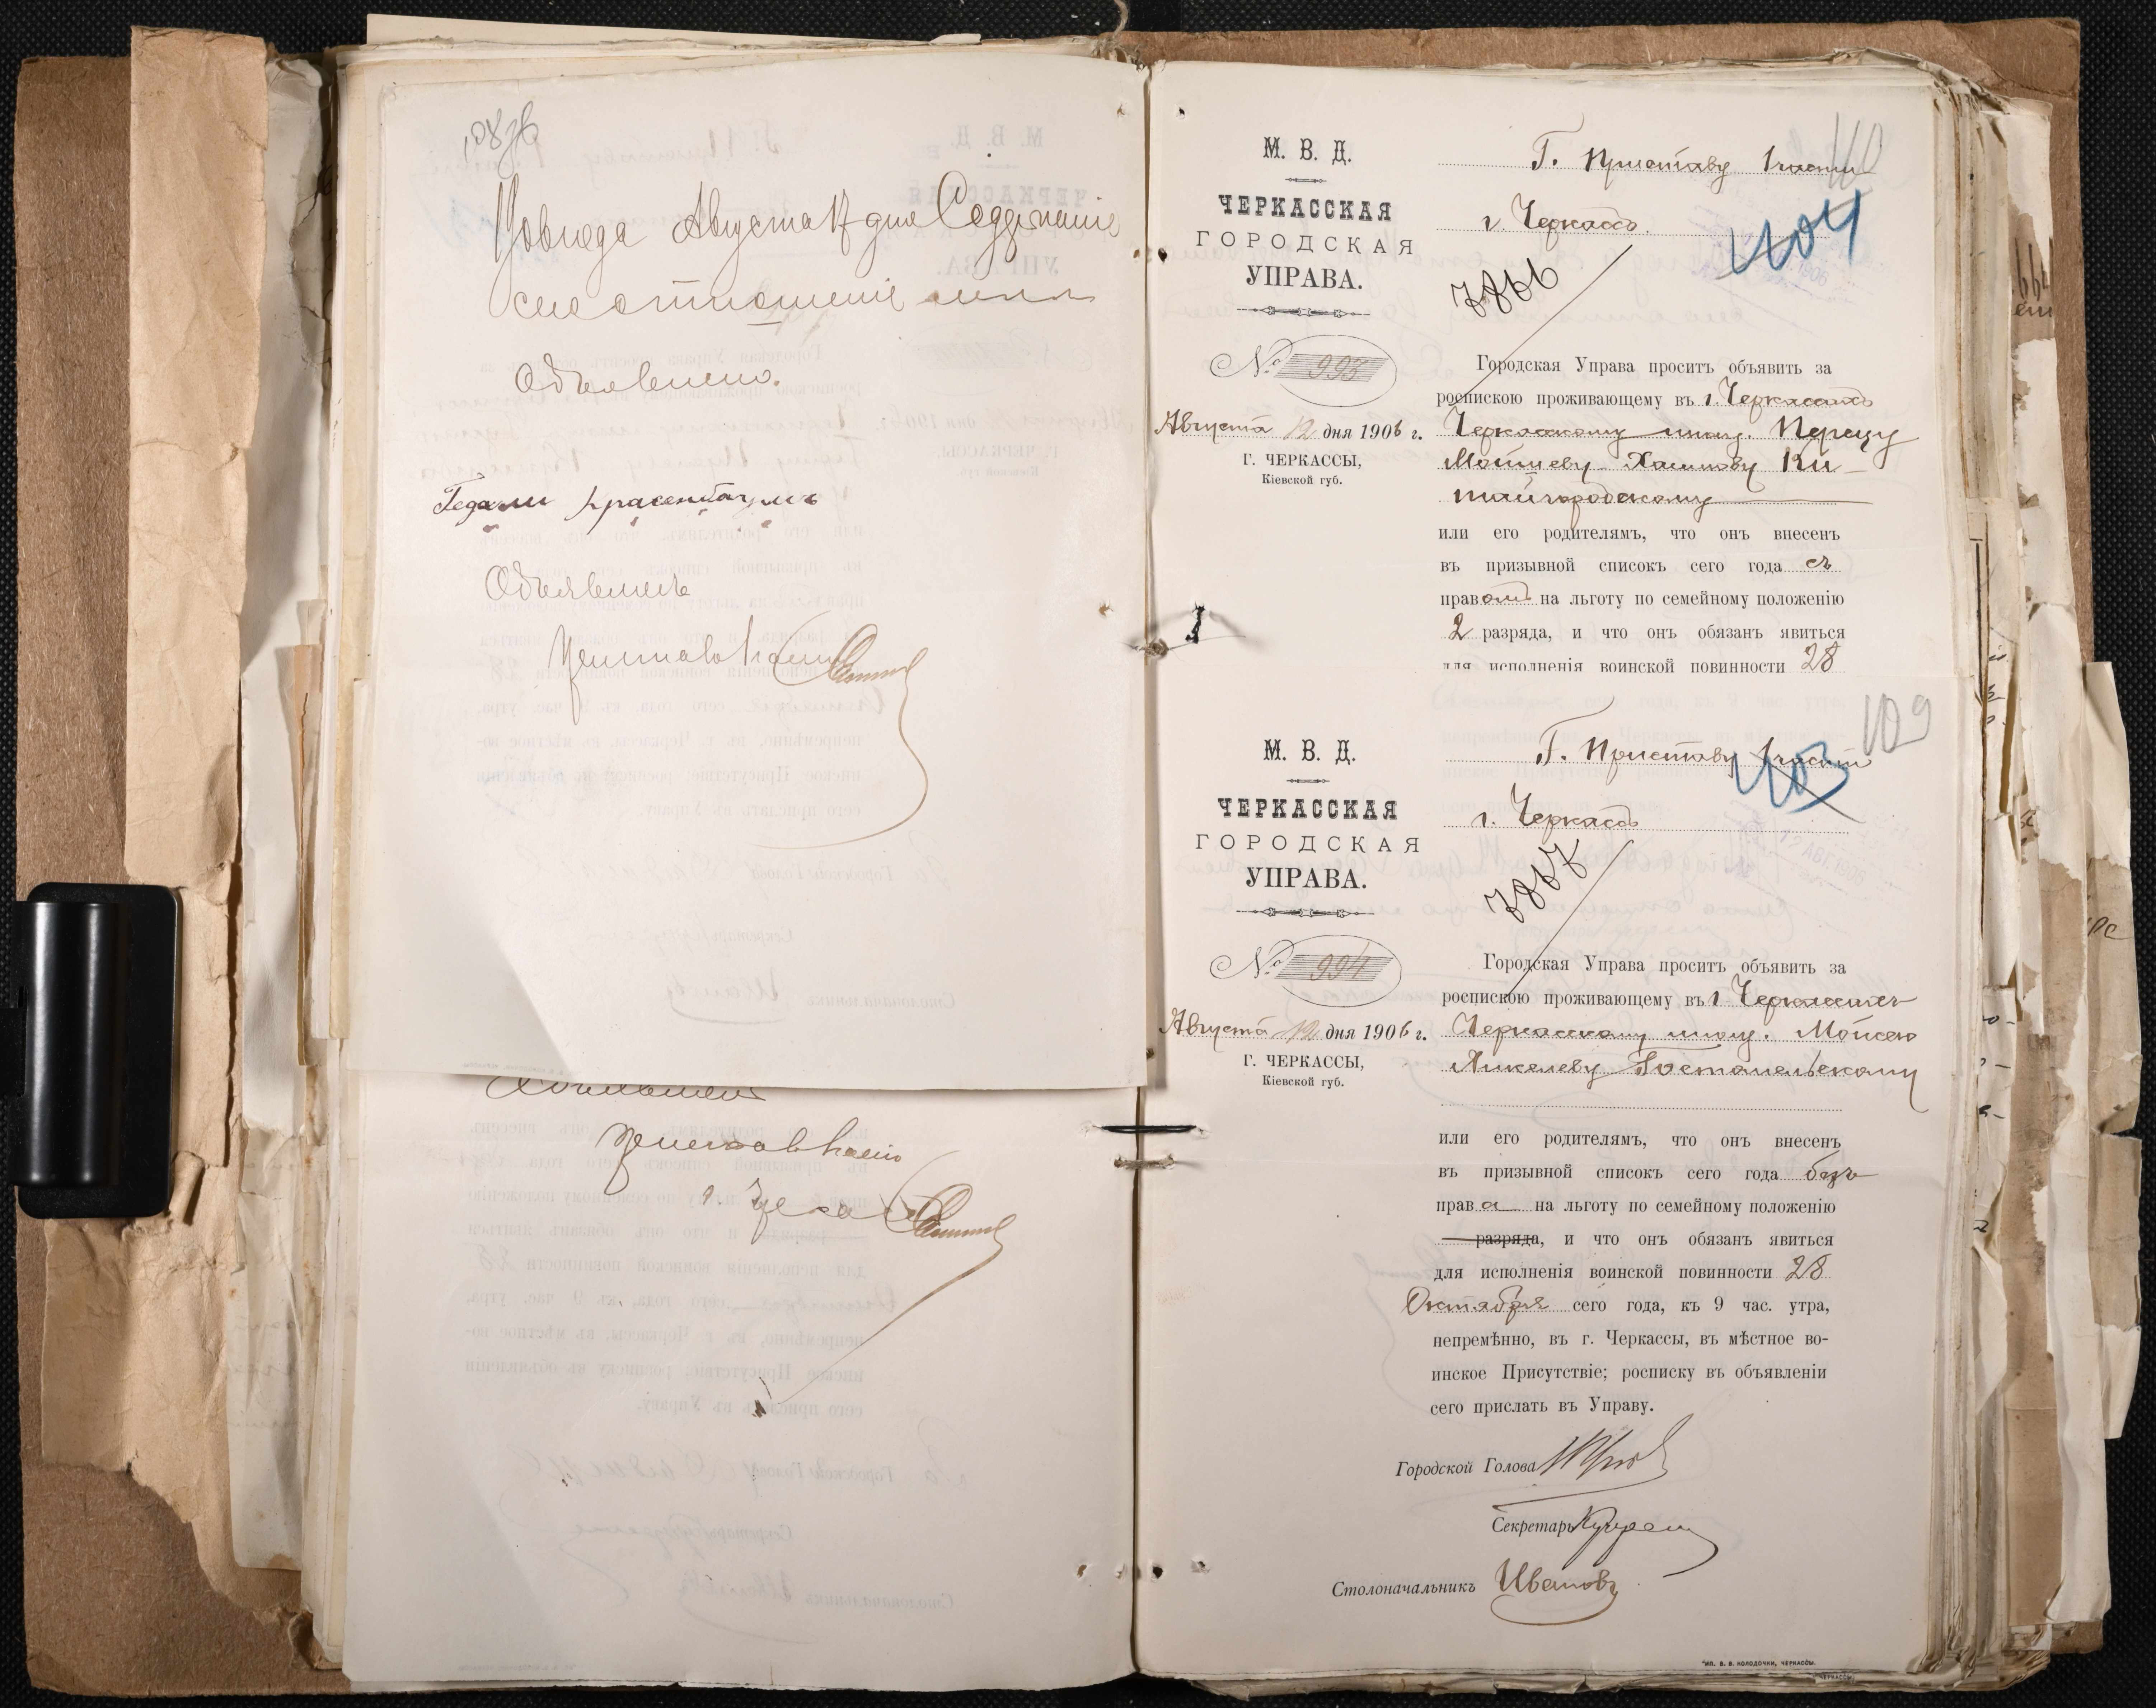 1906 года Августа 17 дня Содержаніе
сие отношеніе мнѣ
Объявлено.
Гедали Красенбаумъ
Объявилъ
Приставъ 1 части
Объявилъ
Приставъ 1 части
г. Черкас
М. В. Д.
ЧЕРКАССКАЯ
ГОРОДСКАЯ
УПРАВА.
№ 993
Августа 12 дня 1906 г.
Г. ЧЕРКАССЫ,
Кіевской губ.
110
Г. Приставу 1 части
г. Черкассъ.
404
7866
Городская Управа проситъ объявить за
роспискою проживающему въ г. Черкассахъ
Черкасскому мѣщ. Перецу
Мотиеву Хаимову Ки-
тайгородскому
или его родителямъ, что онъ внесенъ
въ призывной списокъ сего года съ
правомъ на льготу по семейному положенію
2 разряда, и что онъ обязанъ явиться
для исполненія воинской повинности 28
М. В. Д.
ЧЕРКАССКАЯ
ГОРОДСКАЯ
УПРАВА.
№ 994
Августа 12 дня 1906 г.
Г. ЧЕРКАССЫ,
Кіевской губ.
109
Г. Приставу 1 части
403
г. Черкассъ
12 АВГ. 1906
7867
Городская Управа проситъ объявить за
роспискою проживающему въ г. Черкассахъ
Черкасскому мѣщ. Мойсею
Янкелеву Гостомельскому
или его родителямъ, что онъ внесенъ
въ призывной списокъ сего года безъ
права на льготу по семейному положенію
разряда, и что онъ обязанъ явиться
для исполненія воинской повинности 28
Октября сего года, къ 9 час. утра,
непремѣнно, въ г. Черкассы, въ мѣстное во-
инское Присутствіе; росписку въ объявленіи
сего прислать въ Управу.
Городской Голова
Секретарь
Столоначальникъ Ивановъ
ТИП. В. В. КОЛОДОЧКИ, ЧЕРКАССЫ.
ЧЕРКАССЫ